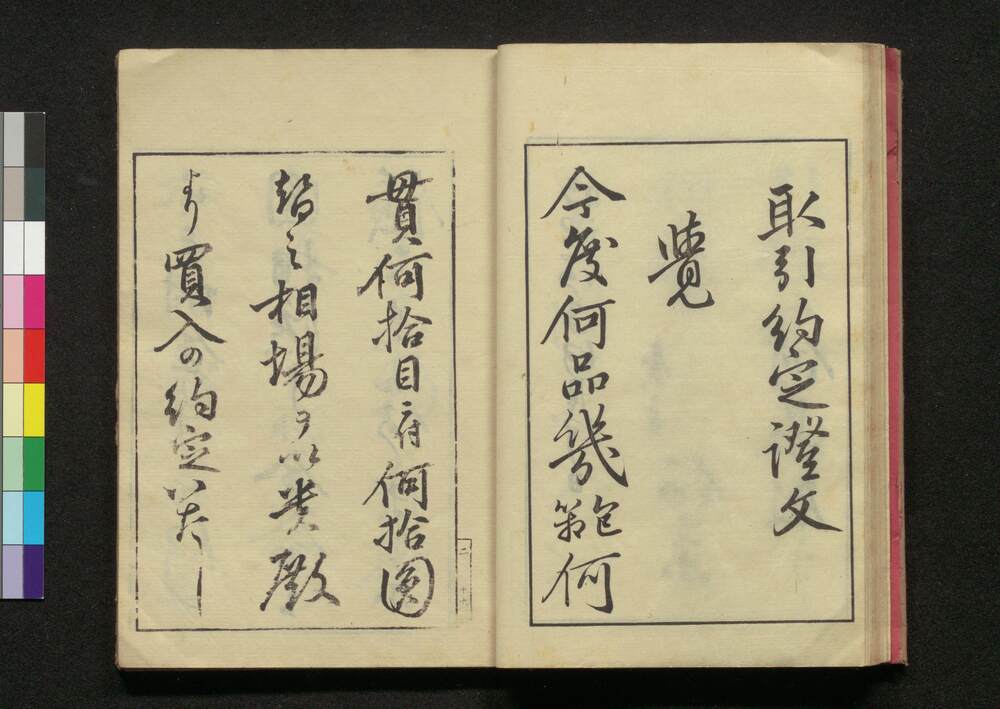 取引約定證文
覺
今度何品幾箇包何
貫何拾目ニ付何拾圓
替之相場ヲ以貴殿
ゟ買入の約定いたし